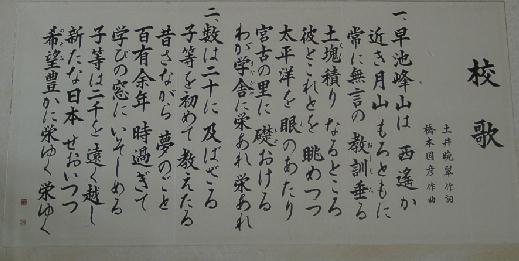 校歌
土井晩翠作詞
橋本国彦作曲
一、早池峰山は 西遙か
近き月山 もろともに
常に無言の 教訓垂る
土塊積り なるところ
彼とこれとを 眺めつつ
太平洋を 眼のあたり
宮古の里に 礎おける
わが学舎に栄あれ 栄あれ
二、数は二十に 及ばざる
子等を初めて 教えたる
昔さながら 夢のごと
百有余年 時過ぎて
学びの窓に いそしめる
子等は二千を 遠く越し
新たな日本 せおいつつ
希望豊かに栄ゆく 栄ゆく